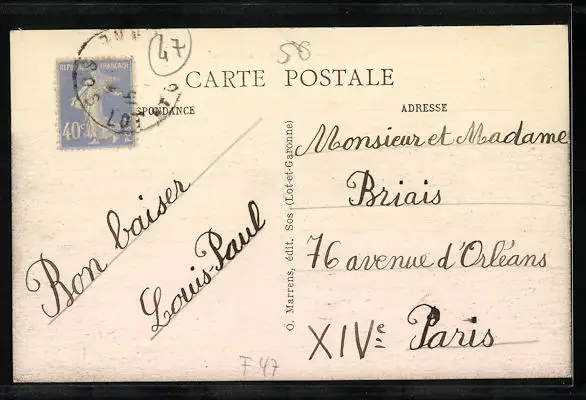 47
58
RÉPUBLIQUE FRANÇAISE
40c
SOS
CARTE POSTALE
SPONDANCE
ADRESSE
Bon baiser
Louis-Paul
O. Marrens, édit. Sos. (Lot-et-Garonne)
Monsieur et Madame
Briais
76 avenue d'Orléans
XIVe Paris
F 47